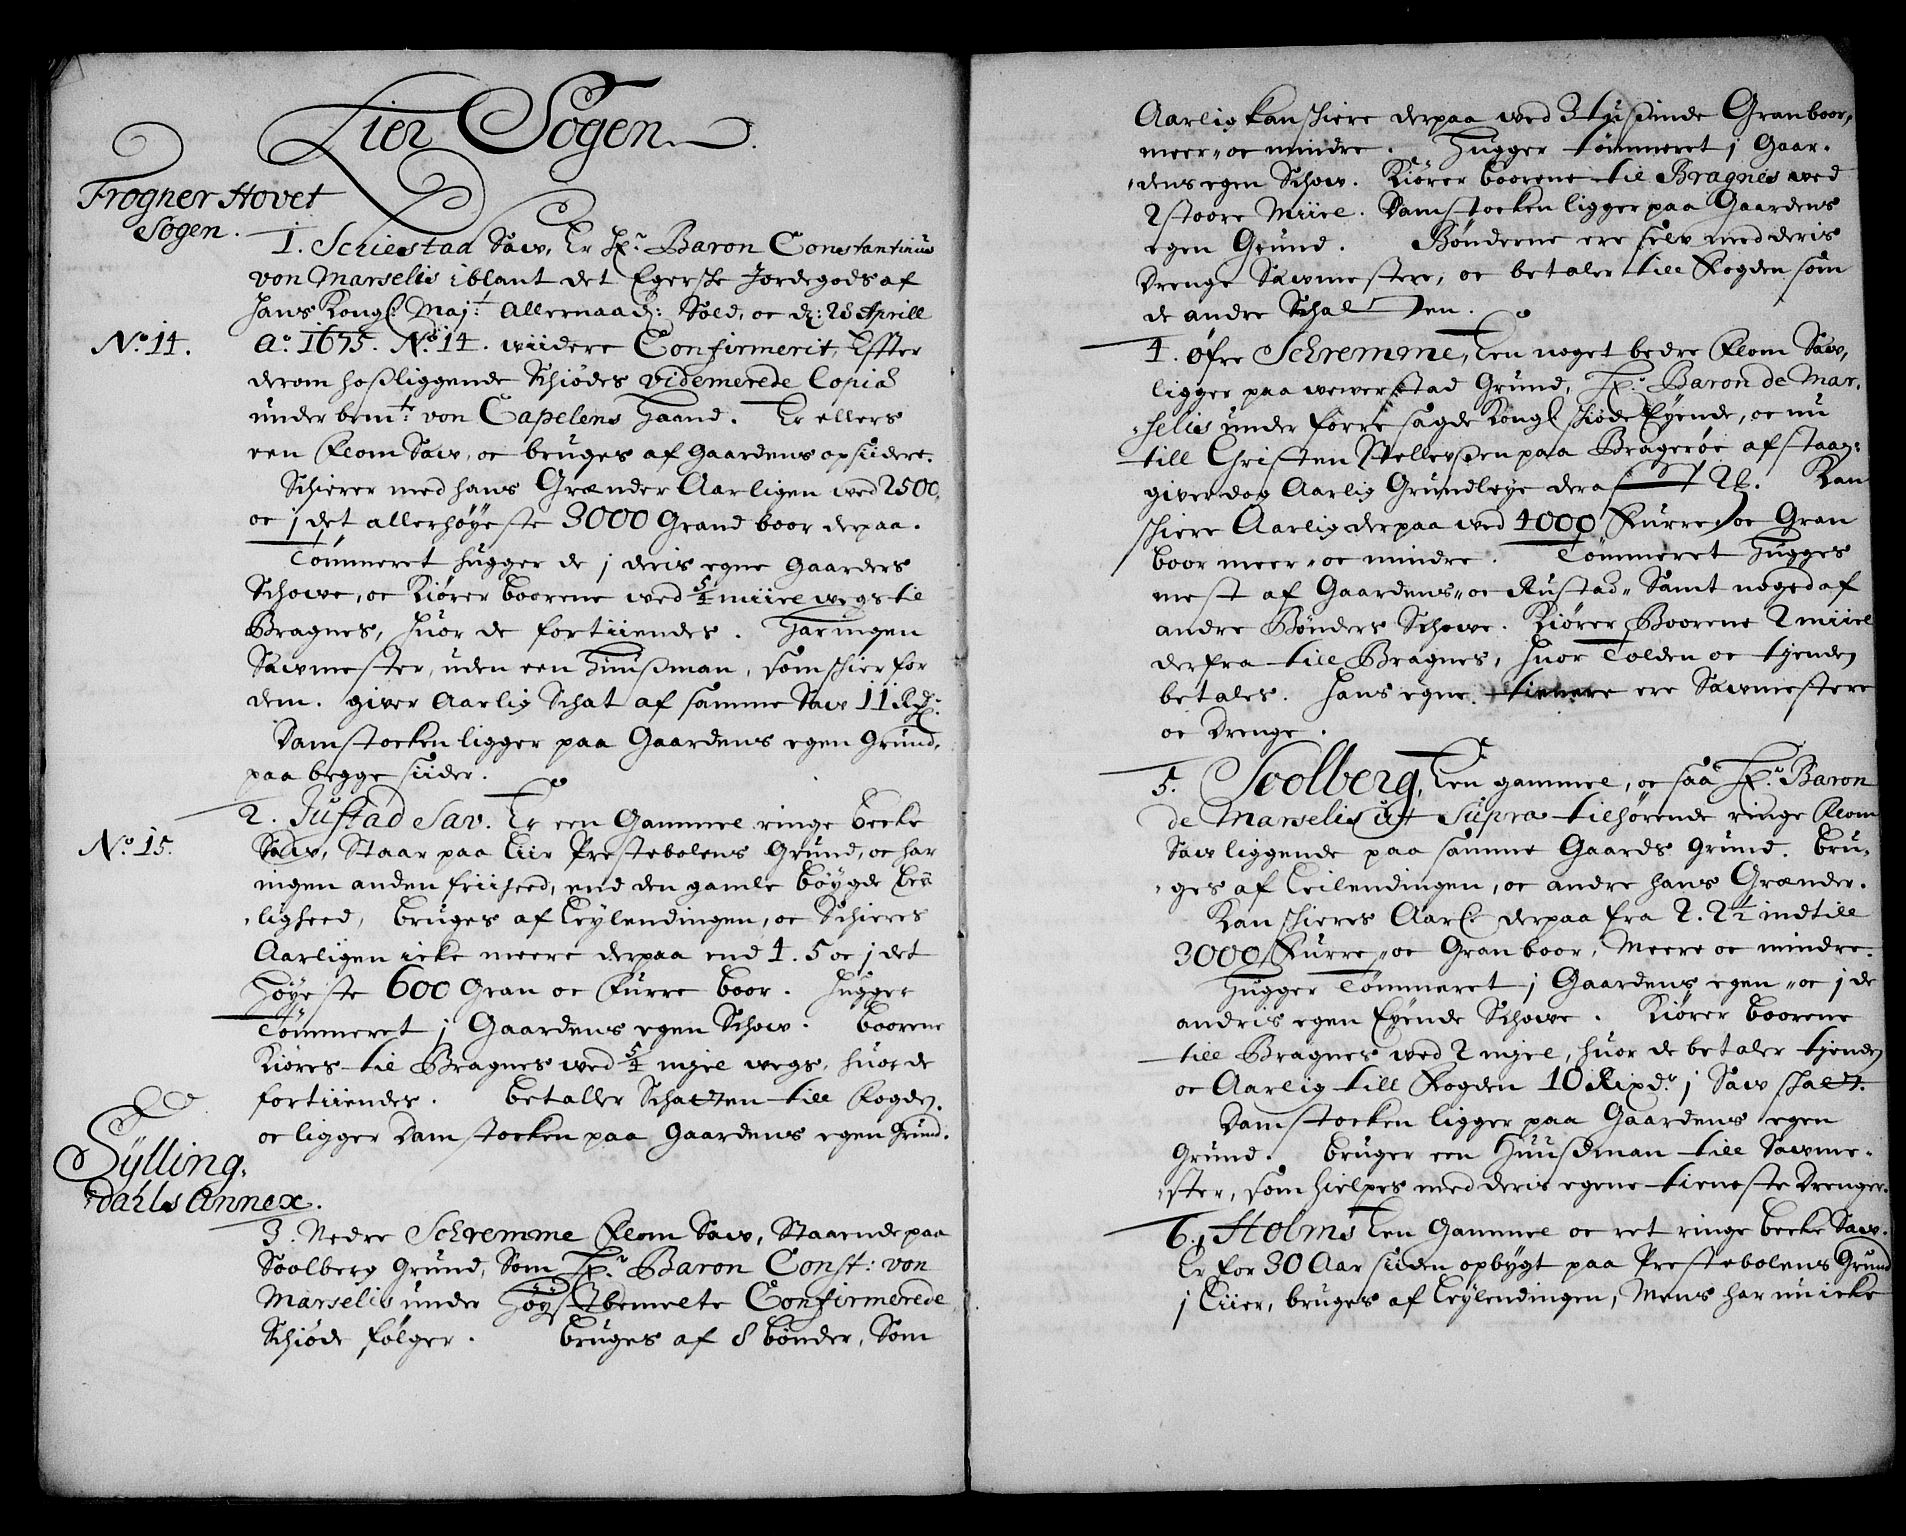 Lier Sogen.
Frogner Hovet
Sogen.
1. Schiestad Saw, Er Hr. Baron Constantinus
von Marselis iblant det Egerske Jordegods af
Hans Kongl: Maj:t Allernaad: Sold, oc d: 28 Aprill
No. 14.
Ao. 1675. No. 14. widere Confirmerit, Effter
derom hoßliggende Schiødes videmerede Copia
under bemte: von Capelens Haand. Er ellers
een Flom Saw, oc bruges af Gaardens opsiidere.
Schierer med hans Grænder Aarligen wed 2500,
oc j det allerhøyeste 3000 Grand boor derpaa.
Tømmeret hugger de j deris egne Gaarders
Schowe, oc Kiører boorene wed 5/4 miiel wegs til
Bragnes, huor de fortiiendes. Har ingen
Sawmester, uden een Huußman, som schier for
dem. giver Aarlig Schat af samme Saw 11 Rdr:
Damstocken ligger paa Gaardens egen Grund,
paa begge siider.
No. 15.
2. Justad Sav. Er een Gammel ringe becke
Saw, Staar paa Liir Prestebolens Grund, oc har
ingen anden friiheed, end den gamle bøygde bei
ligheed, bruges af Leylendingen, oc Schieres
Aarliigen icke meere derpaa end 4. 5 oc j det
Høyeste 600 Gran oc Furre boor. Hugger
Tømmeret j Gaardens egen Schow. Boorene
Kiøres til Bragnes wed 5/4 mjel wegs, huor de
fortiiendes. Betaller Schatten till Fogden.
oc ligger Damstocken paa Gaardens egen Grund.
Sylling,
dahls Annex.
3. Nedre Schremme Flom Saw, Staaende paa
Soolberg Grund, Som Hr. Baron Const: von
Marselis under Høystbemelte Confirmerede
Schiøde følger. Bruges af 8 bønder, Som
Aarlig kan schiere derpaa wed 3 tusinde Gran boor,
meer oc mindre. Hugger tømmeret j Gaar-
dens egen Schow. Kiører boorene til Bragnes wed
2 stoore Miiel. Damstocken ligger paa Gaardens
egen Grund. Bønderne ere selv med deris
Drenge Sawmestere, oc betaler till Fogden som
de andre Schatten.
4. Øfre Schremme, Een noget bedre Flom Saw,
ligger paa wewerstad Grund, Hr. Baron de Mar-
selis under forre sagde Kongl schiøde Eyende, oc nu
till Christen Nellevßen paa Bragerøe afstaan:
giver dog Aarlig Grundleye deraf 2 Kan
schiere Aarlig derpaa wed 4000 Furre oc Gran
boor meer oc mindre. Tømmeret Hugges
mest af Gaardens oc Rustad Samt noged af
andre Bønders Schowe. Kiører Boorene 2 miiel
derfra till Bragnes, huor Tolden oc tjenden
betales. Hans egne tienere ere Sawmestere
oc Drenge.
5. Soolberg, Een gammel, oc saa Hr. Baron
de Marselis ut supra tilhørende ringe Flom
Saw liggende paa samme Gaards Grund. Bru-
ges af Leilendingen, oc andre hans Grænder.
Kan schieres Aarl: derpaa fra 2. 2½ indtill
3000 Furre oc Gran boor, Meere oc mindre.
Hugger Tømmeret j Gaardens egen oc j de
andris egen Eyende Schowe. Kiører boorene
till Bragnes wed 2 mjel, huor de betaler tjenden
oc Aarlig till Fogden 10 Rixdr j Saw schatt.
Damstocken ligger paa Gaardens egen
Grund. Bruger een Huußman till Sawme-
ster, som hielpes med deris egene tieneste Drenger.
6. Holms Een Gammel oc ret ringe becke Saw.
Er for 30 Aar siiden opbygt paa Prestebolens Grund
j Liier, bruges af Leylendingen, Mens har nu icke